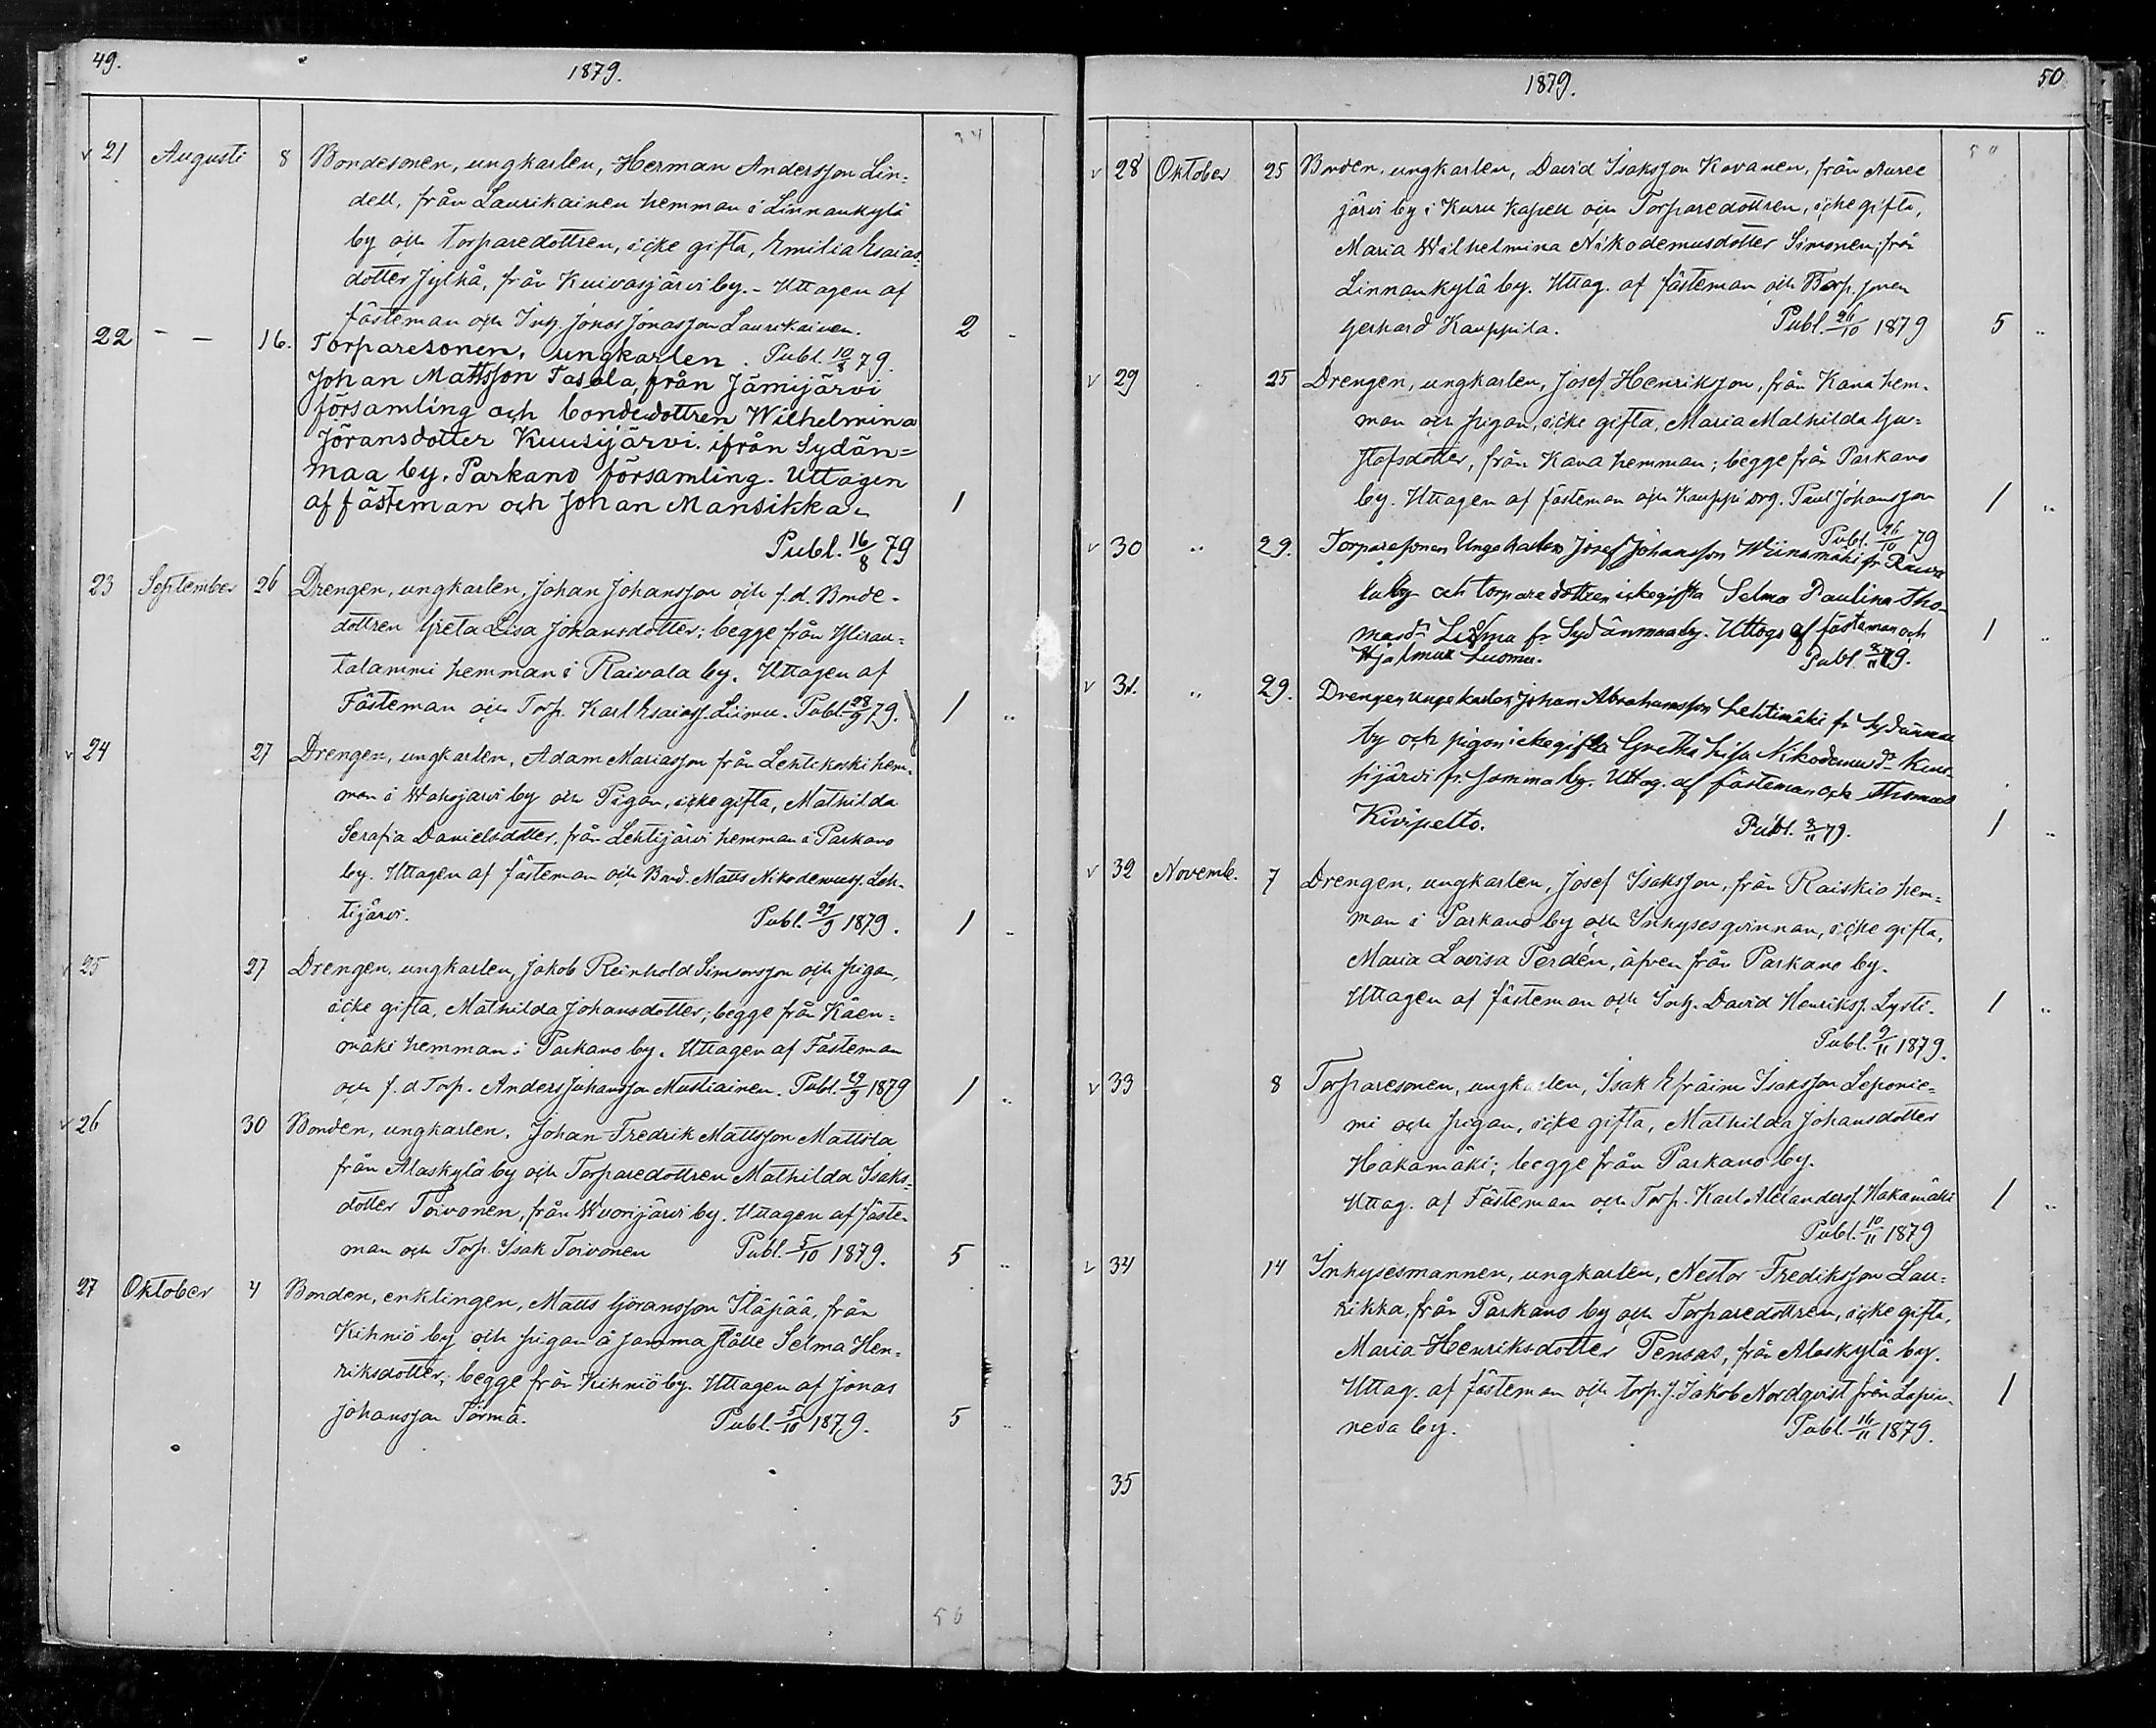 49.
1879.
34
v 21 Augusti 8 Bondesonen, ungkarlen, Herman Andersson Lin-
dell, från Laurikainen hemman i Linnankylä
by och torparedottren, icke gifta, Emilia Esaias-
dotter Jylhä, från Kuivasjärvi by. - Uttagen af
fästeman och Inh. Jonas Jonasson Laurikainen. 2 -
22 - - 16. Torparesonen, ungkarlen. Publ. 10/8 79.
Johan Mattsson Tasala, från Jämijärvi
församling och bondedottren Wilhelmina
Jöransdotter Kuusijärvi ifrån Sydän=
maa by, Parkano församling. Uttagen
af fästeman och Johan Mansikka 1
Publ. 16/8 79
23 September 26 Drengen, ungkarlen, Johan Johansson och f.d. Bonde-
dottren Greta Lisa Johansdotter; begge från Yliran-
talammi hemman i Raivala by. Uttagen af
Fästeman och Torp. Karl Esaiass. Liimu. Publ. 28/9 79. 1 ..
v 24 27 Drengen, ungkarlen, Adam Mariasson från Lehtikoski hem-
man i Wahojärvi by och Pigan, icke gifta, Mathilda
Serafia Danielsdotter, från Lehtijärvi hemman i Parkano
by. Uttagen af fästeman och Bond. Matts Nikodemuss. Leh-
tijärvi. Publ. 29/9 1879. 1 ..
v 25 27 Drengen, ungkarlen, Jakob Reinhold Simonsson och pigan,
icke gifta, Mathilda Johansdotter; begge från Käen-
mäki hemman i Parkano by. Uttagen af Fästeman
och f.d Torp. Anders Johansson Mustiainen. Publ. 29/9 1879 1 ..
v 26 30 Bonden, ungkarlen, Johan Fredrik Mattsson Mattila
från Alaskylä by och Torparedottren Mathilda Isaks-
dotter Toivonen, från Wuorijärvi by. Uttagen af fäste-
man och Torp. Isak Toivonen Publ. 5/10 1879. 5 ..
27 Oktober 4 Bonden, enklingen, Matts Göransson Yläpää, från
Kihniö by och pigan å samma ställe Selma Hen-
riksdotter; begge från Kihniö by. Uttagen af Jonas
Johansson Törmä. Publ. 5/10 1879. 5 ..
50
1879.
50
50
v 28 Oktober 25 Bonden, ungkarlen, David Isaksson Kovanen, från Auree
järvi by i Kuru Kapell och Torparedottren, icke gifta,
Maria Wilhelmina Nikodemusdotter Simonen, från
Linnankylä by. Uttag. af fästeman och Torp. sonen
Gerhard Kauppila. Publ. 26/10 1879 5 ..
v 29 25 Drengen, ungkarlen, Josef Henriksson, från Kana hem-
man och pigan, icke gifta, Maria Mathilda Gu-
stafsdotter, från Kana hemman; begge från Parkano
by. Uttagen af fästeman och Kauppi drg. Paul Johansson 1 ..
Publ. 26/10 79
v 30 .. 29. Torparesonen Ungekarlen Josef Johansson Wiinamäki fr Raiva
la by och torpare dottren ickegifta Selma Paulina Tho-
masdr Liimu fr Sydänmaa by. Uttogs af fästeman och 1 ..
Hjalmar Luoma. Publ. 2/11 79.
v 31. .. 29. Drengen Ungekarlen Johan Abrahamsson Lehtimäki fr Sydänmaa
by och pigan ickegifta Gretha Lisa Nikodemusdr Kuu-
sijärvi fr. samma by. Uttog. af fästeman och Thomas
Kivipelto. Publ. 2/11 79. 1 ..
v 32 Novemb. 7 Drengen, ungkarlen, Josef Isaksson, från Raiskio hem-
man i Parkano by och Inhysesqvinnan, icke gifta,
Maria Lovisa Perdén, äfven från Parkano by.
Uttagen af fästeman och Inh. David Henrikss. Lysti. 1 ..
Publ. 9/11 1879.
v 33 8 Torparesonen, ungkarlen, Isak Efraim Isaksson Leponie-
mi och pigan, icke gifta, Mathilda Johansdotter
Hakamäki; begge från Parkano by.
Uttag. af Fästeman och Torp. Karl Alexanders. Hakamäki 1 ..
Publ. 10/11 1879
v 34 14 Inhysesmannen, ungkarlen, Nestor Fredriksson Lau-
rikka, från Parkano by och Torparedottren, icke gifta,
Maria Henriksdotter Pensas, från Alaskylä by.
Uttag. af fästeman och torp. s. Jakob Nordqvist från Lapin- 1
neva by. Publ. 16/11 1879.
35